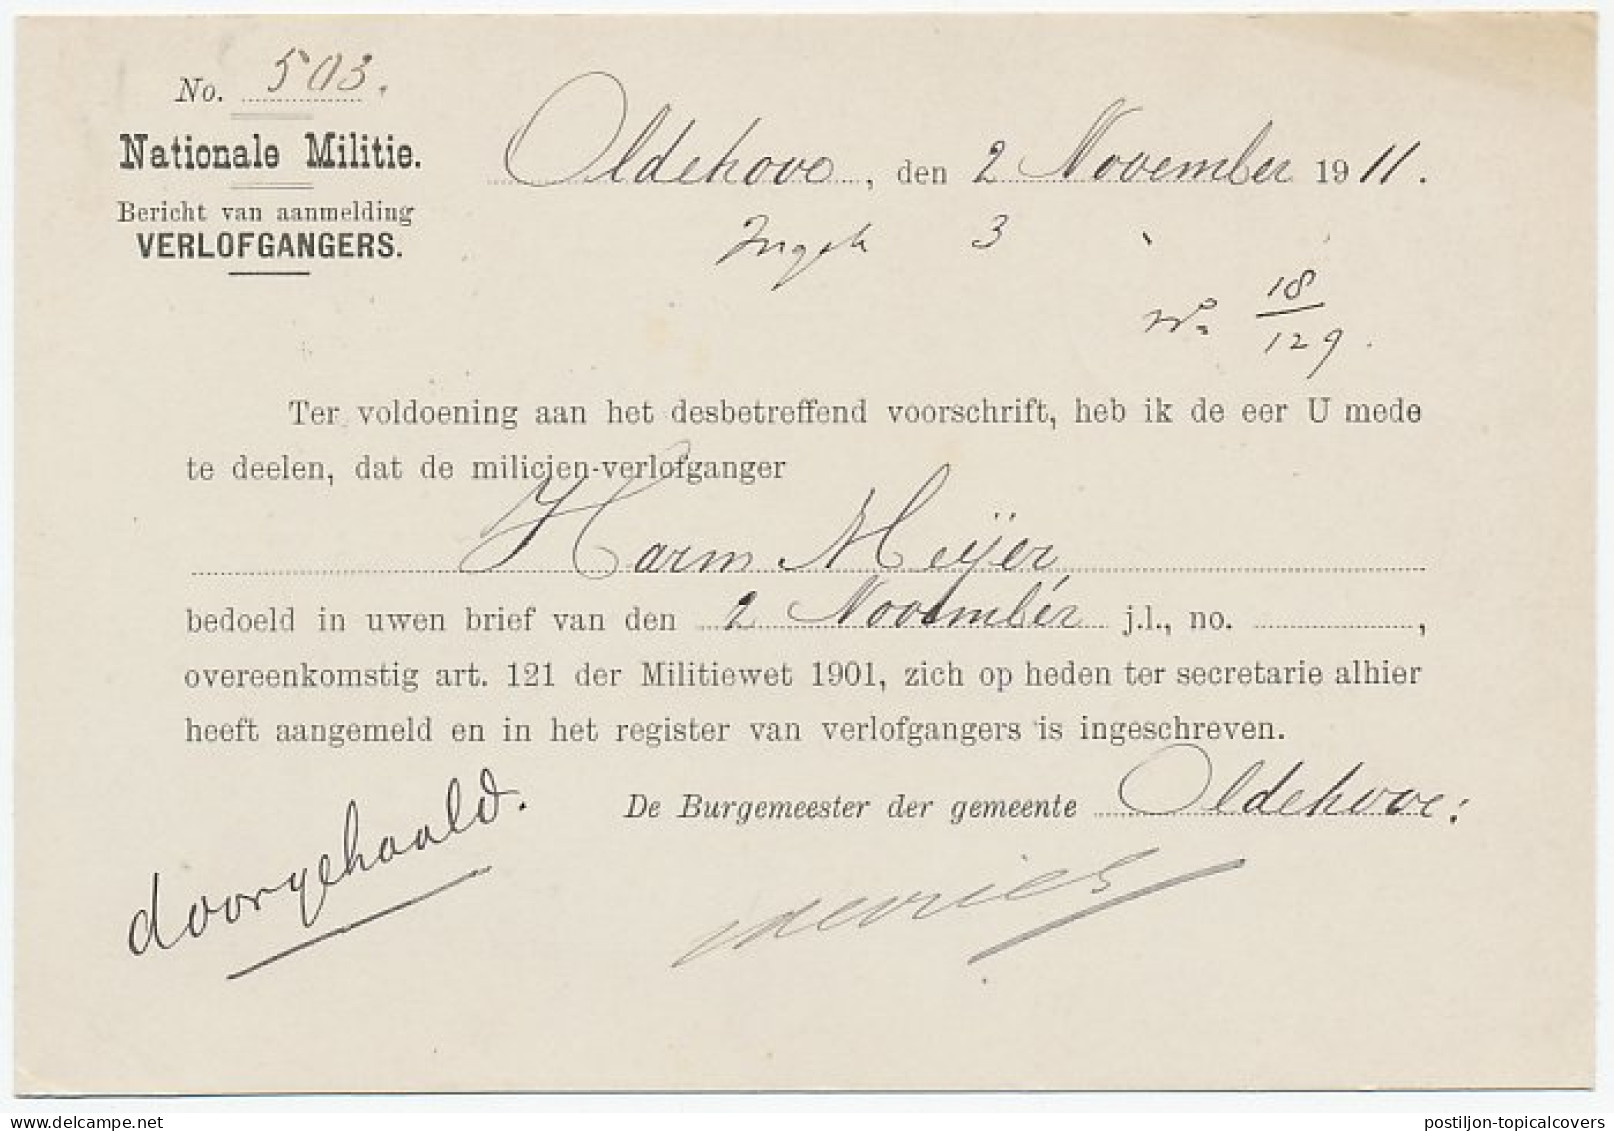 No. 503.
Nationale Militie.
Bericht van aanmelding
VERLOFGANGERS.
Oldehove, den 2 November 1911.
Ingek 3
No 18/129.
Ter voldoening aan het desbetreffend voorschrift, heb ik de eer U mede
te deelen, dat de milicien-verlofganger
Harm Meijer
bedoeld in uwen brief van den 2 November j.l., no. ,
overeenkomstig art. 121 der Militiewet 1901, zich op heden ter secretarie alhier
heeft aangemeld en in het register van verlofgangers is ingeschreven.
De Burgemeester der gemeente Oldehove:
doorgehaald.
postiljon-topicalcovers